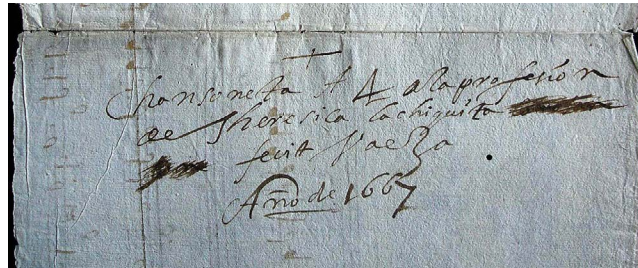 Chansoneta A 4 a la profesion
de Theresica la chiquita
fecit Vaeza
Año de 1667